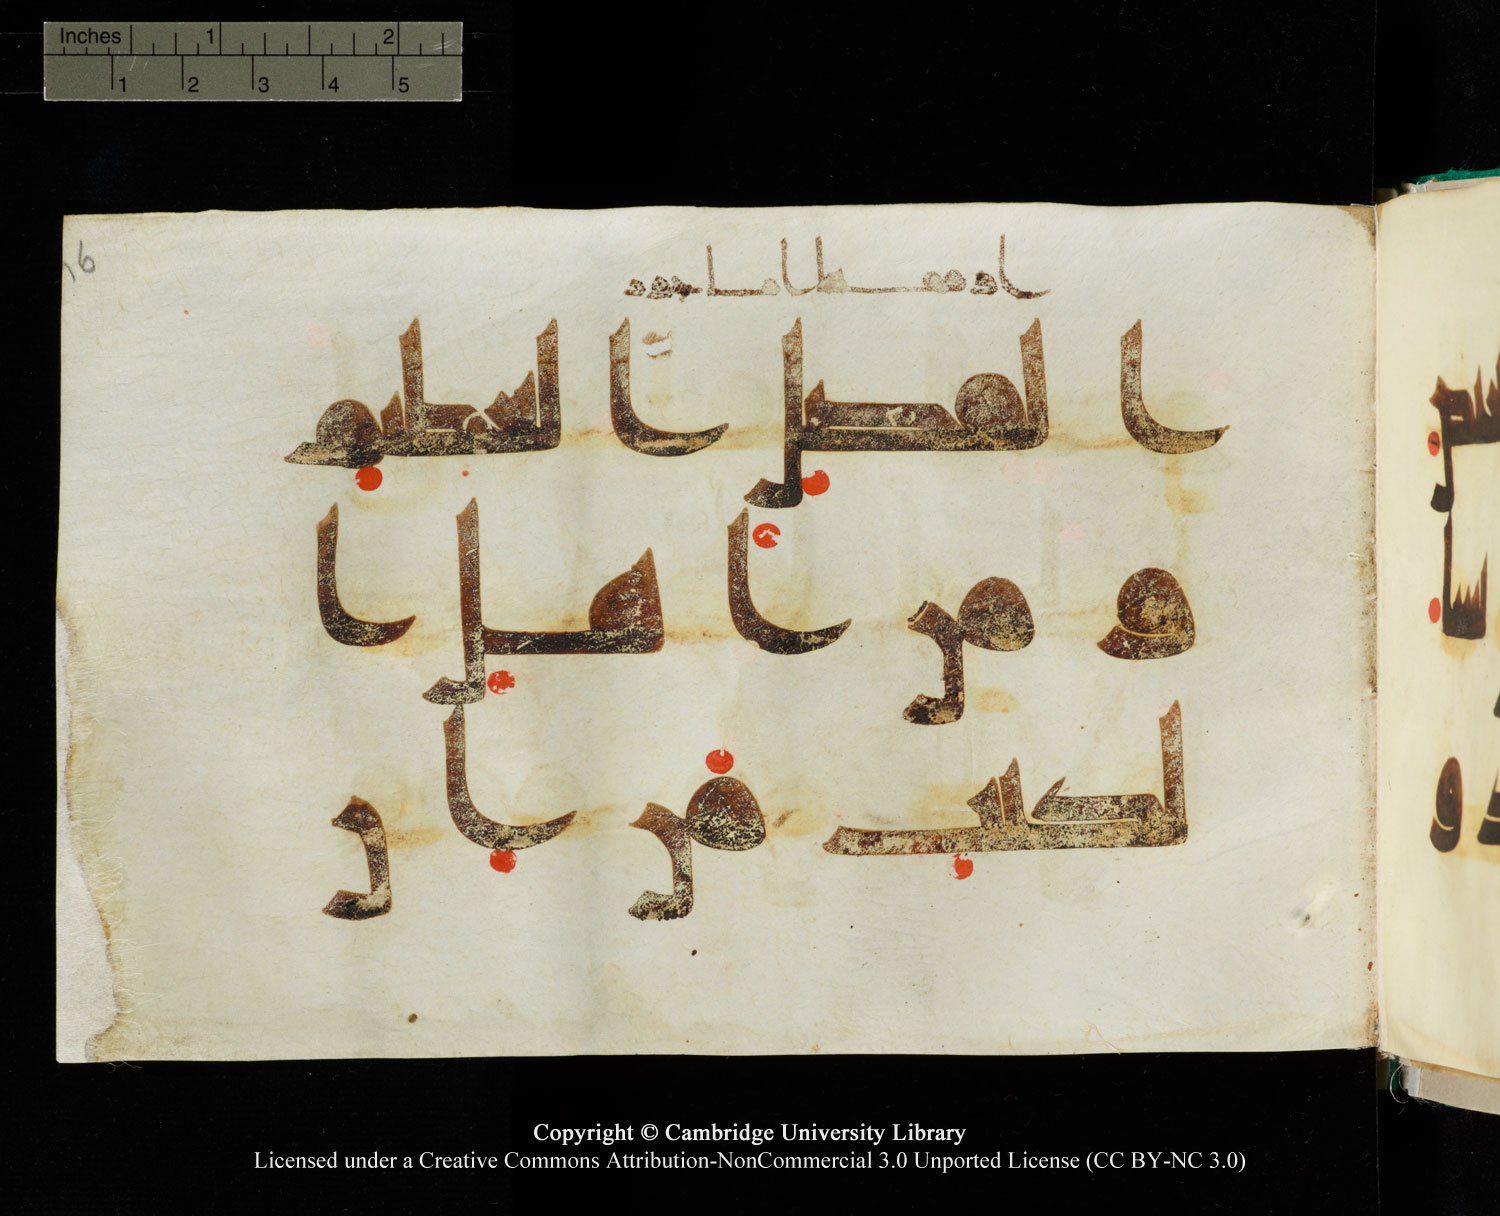 Inches 1 2
1 2 3 4 5
16
الفضل العظيم
ومن اهل ا
لكتب من ان
Copyright © Cambridge University Library
Licensed under a Creative Commons Attribution-NonCommercial 3.0 Unported License (CC BY-NC 3.0)